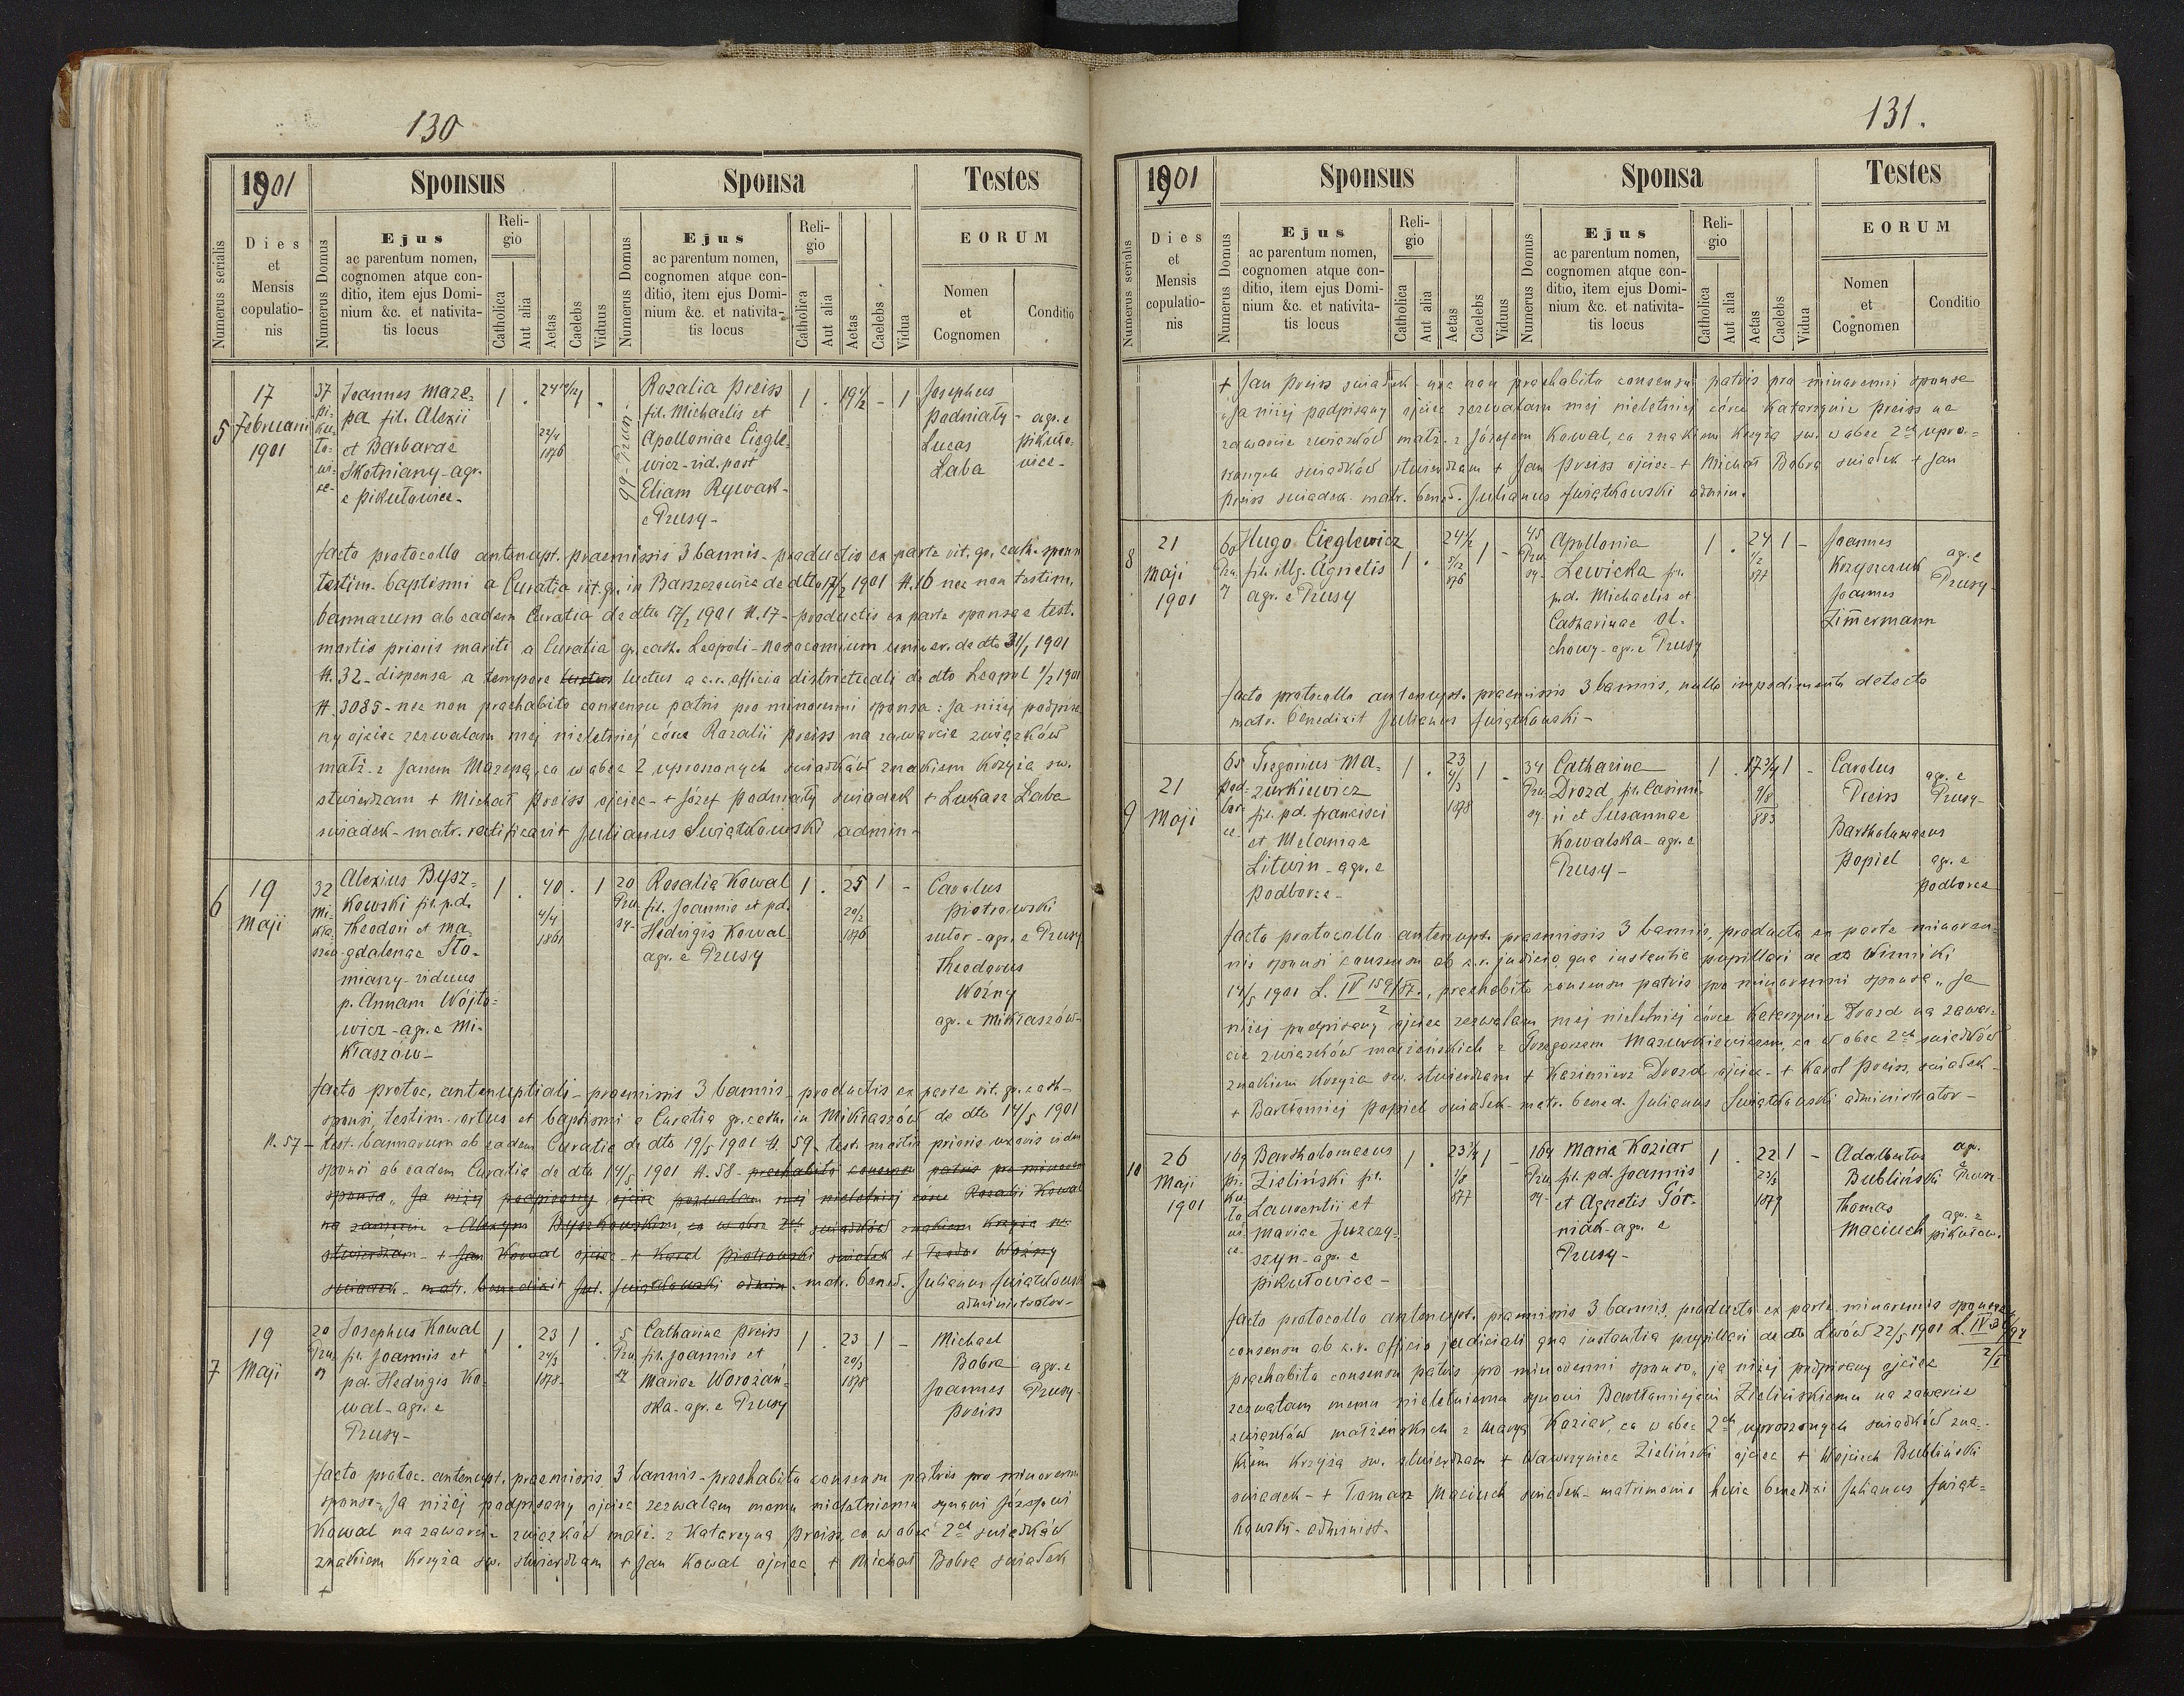 130
1901
Sponsus
Sponsa
Testes
Numerus serialis
Dies
et
Mensis
copulatio-
nis
Numerus Domus
Ejus
ac parentum nomen,
cognomen atque con-
ditio, item ejus Domi-
nium &c. et nativita-
tis locus
Reli-
gio
Catholica
Aut alia
Aetas
Caelebs
Viduus
Numerus Domus
Ejus
ac parentum nomen,
cognomen atque con-
ditio, item ejus Domi-
nium &c. et nativita-
tis locus
Reli-
gio
Catholica
Aut alia
Aetas
Caelebs
Vidua
EORUM
Nomen
et
Cognomen
Conditio
5
17
Februarii
1901
37
Pi-
ku-
to-
wi-
ce-
Joannes Maze-
pa fil. Alexii
et Barbarae
Skotniany - agr.
e Pikułowice -
1 .
1 .
1876
99 - Prusy
Rozalia Preiss
fil. Michaelis et
Apolloniae Ciegle-
wicz - vid. post
Eliam Rywak -
e Prusy -
1 . 19 1/2 - 1
Josephus
Podniały -
Lucas
Łaba
agr. e
Pikuło-
wice -
facto protocollo antenupt. praemissis 3 bannis - productis ex parte rit. gr. cath. sponsi
testim. baptismi a Curatia rit. gr. in Barszczowice de dto 17/2 1901 N. 16 nec non testim.
bannorum ab eadem Curatia de dto 17/2 1901 N. 17 - productis ex parte sponsae test.
mortis prioris mariti a Curatia gr. cath. Leopoli - nosocomium univer. de dto 31/1 1901
N. 32 - dispensa a tempore luctus a c. r. officio districtuali de dto Leopol 1/2 1901
N. 3085 - nec non praehabito consensu patris pro minorenni sponsa: Ja niżej podpisa-
ny ojciec zezwalam mej nieletniej córce Rozalii Preiss na zawarcie związków
małż. z Janem Mazepą, co wobec 2 uproszonych świadków znakiem krzyża sw.
stwierdzam + Michał Preiss ojciec - + Józef Podniały świadek + Lukasz Łaba
świadek - matr. ratificavit Julianus Swiątkowski admin -
6
19
Maji
32
Mi-
kła-
szów
Alexius Bysz-
kowski fil. p.d.
Theodori et Ma-
gdalenae Sło-
miany - viduus
p. Annam Wójto-
wicz - agr. e Mi-
kłaszów -
1 . 40 . 1
4/4
1861
20
Pru-
sy -
Rosalia Kowal
fil. Joannis et pd.
Hedvigis Kowal
agr. e Prusy
1 . 25 1 -
20/2
1876
Carolus
Piotrowski
sutor - agr. e Prusy
Theodorus
Woźny
agr. e Mikłaszów -
facto protoc. antenuptiali - praemissis 3 bannis - productis ex parte rit. gr. cath -
sponsi, testim. ortus et baptismi a Curatia gr. cath. in Mikłaszów de dto 14/5 1901
N. 57 - test. bannorum ab eadem Curatia de dto 19/5 1901 N. 59 - test. mortis prioris uxoris eidem
sponsi ab eadem Curatia de dto 14/5 1901 N. 58 - praehabito consensu patris pro minoren
sponsa „Ja niżej podpisany ojciec pozwalam mej nieletniej córce Rozalii Kowal
na zawarcie z Alexym Byszkowskim, co wobec 2ch świadków znakiem krzyża sw.
stwierdzam - + Jan Kowal ojciec - + Karol Piotrowski świadek + Teodor Woźny
świadek - matr. benedixit Jul. Swiątkowski admin - matr. bened. Julianus Swiątkowski
administrator -
7
19
Maji
20
Pru-
sy
Josephus Kowal
fil. Joannis et
pd. Hedvigis Ko-
wal - agr. e
Prusy -
1 . 23 1 .
24/3
1878 -
5
Pru-
sy
Catharina Preiss
fil. Joannis et
Mariae Worożań-
ska - agr. e Prusy
1 . 23 1 -
20/3
1878
Michael
Bobra
Joannes
Preiss
agr. e
Prusy -
facto protoc. antenupt. praemissis 3 bannis - praehabito consensu patris pro minorenni
sponso - „Ja niżej podpisany ojciec zezwalam memu nieletniemu synowi Józefowi
Kowal na zawarcie związków małż. z Katarzyną Preiss, co wobec 2ch świadków
znakiem krzyża sw. stwierdzam + Jan Kowal ojciec + Michał Bobra świadek
+
131.
1901
Sponsus
Sponsa
Testes
Numerus serialis
Dies
et
Mensis
copulatio-
nis
Numerus Domus
Ejus
ac parentum nomen,
cognomen atque con-
ditio, item ejus Domi-
nium &c. et nativita-
tis locus
Reli-
gio
Catholica
Aut alia
Aetas
Caelebs
Viduus
Numerus Domus
Ejus
ac parentum nomen,
cognomen atque con-
ditio, item ejus Domi-
nium &c. et nativita-
tis locus
Reli-
gio
Catholica
Aut alia
Aetas
Caelebs
Vidua
EORUM
Nomen
et
Cognomen
Conditio
+ Jan Preiss świadek - nec non praehabito consensu patris pro minorenni sponsa
„Ja niżej podpisany ojciec zezwalam mej nieletniej córce Katarzynie Preiss na
zawarcie związków małż. z Józefem Kowal, co znakiem krzyża sw. wobec 2ch upro-
szonych świadków stwierdzam + Jan Preiss ojciec - + Michał Bobra świadek + Jan
Preiss świadek - matr. bened. Julianus Swiątkowski admin.
8
21
Maji
1901
60
Pru-
sy
Hugo Cieglewicz
fil. illg. Agnetis
agr. e Prusy
1 .
24 1/2
5/12
876
1 -
45
Pru-
sy -
Apollonia
Lewicka fil.
p.d. Michaelis et
Catharinae Ol-
chowy - agr. e Prusy
1 . 24 1 -
1/2
877
Joannes
Krzyszczuk
Joannes
Zimermann
agr. e
Prusy -
facto protocollo antenupt. praemissis 3 bannis, nullo impedimento detecto
matr. benedixit Julianus Swiątkowski -
9
21
Maji
65
Pod-
bor-
ce
Gregorius Ma-
zurkiewicz
fil. pd. Francisci
et Melaniae
Litwin - agr. e
Podborce -
1 . 23 1 -
4/3
1878
34
Pru-
sy -
Catharina
Drozd fil. Casimi-
ri et Susannae
Kowalska - agr. e
Prusy -
1 . 17 3/4 1 -
9/8
883
Carolus
Preiss
Bartholomaeus
Popiel
agr. e
Prusy -
agr. e
Podborce
facto protocollo antenupt. praemissis 3 bannis, producto ex parte minoren-
nis sponsi consensu ab c. r. judicio qua instantia pupillari de dto Winniki
14/5 1901 L. IV 159/, praehabito consensu patris pro minorenni sponsa „Ja
niżej podpisany ojciec zezwalam mej nieletniej córce Katarzynie Drozd na zawar-
cie związków małżeńskich z Grzegorzem Mazurkiewiczem, co w obec 2ch świadków
znakiem krzyża sw. stwierdzam + Kazimierz Drozd ojciec - + Karol Preiss, świadek -
+ Bartłomiej Popiel świadek - matr. bened. Julianus Swiątkowski administrator -
10
26
Maji
1901
169
Pi-
ku-
ło-
wi-
ce -
Bartholomaeus
Zieliński fil.
Laurentii et
Mariae Juzczy-
szyn - agr. e
Pikułowice -
1 . 23 3/4 1 -
1/8
877
164
Pru-
sy -
Maria Koziar
fil. pd. Joannis
et Agnetis Gór-
niak - agr. e
Prusy -
1 . 22 1 -
1879
Adalbertus
Bubliński
Thomas
Maciuch
agr.
e
Prusy -
agr. e
Pikułow.
facto protocollo antenupt. praemissis 3 bannis, producto ex parte minorennis sponsae
consensu ab c. r. officio judiciali qua instantia pupillari de dto Lwów 22/5 1901 L. IV
praehabito consensu patris pro minorenni sponso „ja niżej podpisany ojciec
zezwalam memu nieletniemu synowi Bartłomiejowi Zielińskiemu na zawarcie
związków małżeńskich z Maryą Koziar, co w obec 2ch uproszonych świadków zna-
kiem krzyża sw. stwierdzam + Wawrzyniec Zieliński ojciec + Wojciech Bubliński
świadek - + Tomasz Maciuch świadek - matrimonio huic benedixi Julianus Swiąt-
kowski - administ.